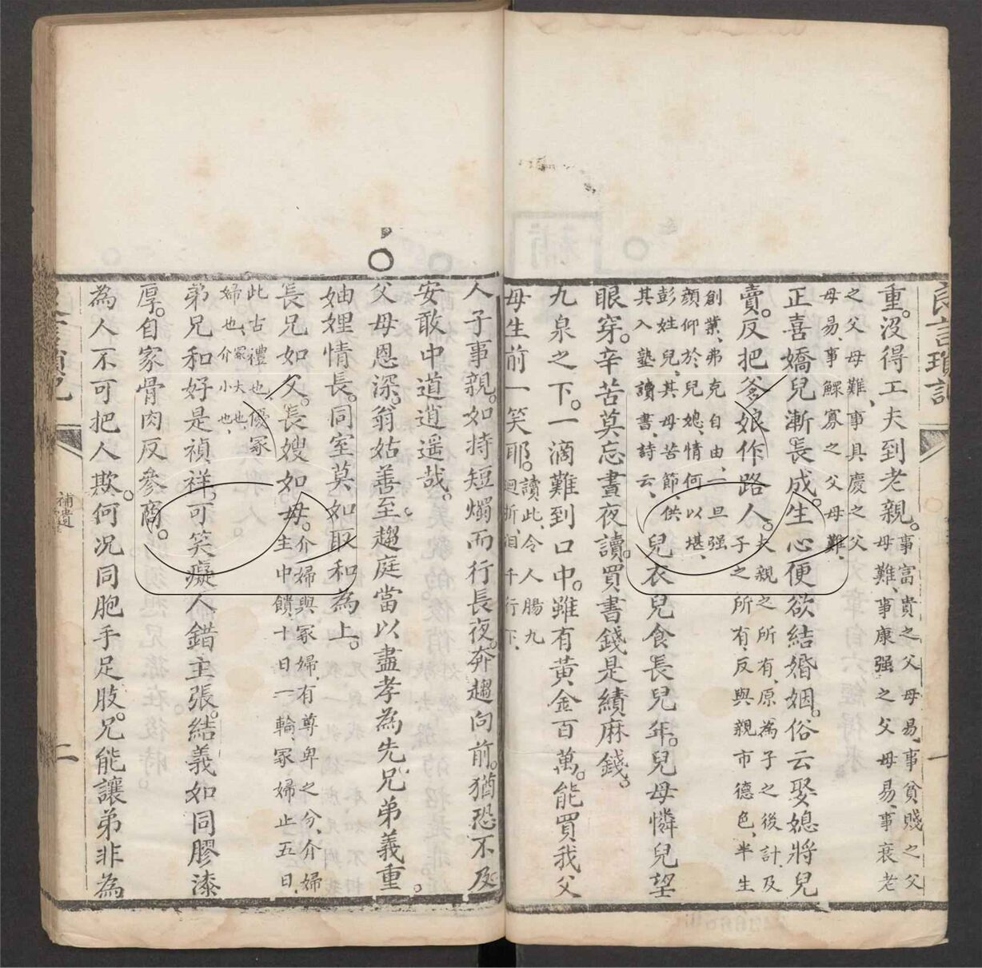 重。沒得工夫到老親。事富貴之父母易、事貧賤之父母難、事康强之父母易、事衰老
之父母難、事具慶之父母易、事鰥寡之父母難、
正喜嬌兒漸長成。生心便欲結婚姻。俗云娶媳將兒
賣。反把爹娘作路人。夫親之所有、原為子之後計、及子之所有、反與親市德色、半生
創業、弗克自由、一旦强顔仰於兒媳、情何以堪、
彭姓兒、其母苦節、供其入塾讀書、詩云、兒衣兒食長兒年。兒母憐兒望
眼穿。辛苦莫忘晝夜讀。買書錢是績麻錢。
九泉之下。一滴難到口中。雖有黃金百萬。能買我父
母生前一笑耶。讀此、令人腸九迴折、泪千行下、
人子事親。如持短燭而行長夜。奔趨向前。猶恐不及
安敢中道逍遥哉。
父母恩深、翁姑善至、趨庭當以盡孝為先、兄弟義重。
妯娌情長。同室莫如取和為上。
長兄如父。長嫂如母。介婦與冢婦、有尊卑之分、介婦主中饋、十日一輪、冢婦止五日、
此古禮也、冢婦也、冢大也、介小也、
弟兄和好是禎祥。可笑癡人錯主張。結義如同膠漆
厚。自家骨肉反參商。
為人不可把人欺。何况同胞手足肢。兄能讓弟非為
補遺
一
二